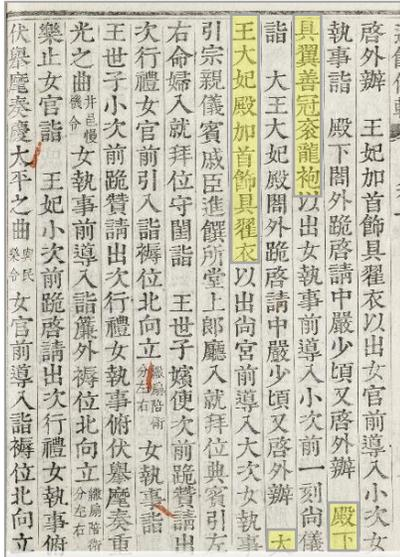 啓外辦 王妃加首飾具翟衣以出女官前導入小次女
執事詣 殿下閤外跪啓請中嚴少頃又啓外辦 殿下
具翼善冠衮龍袍以出女執事前導入小次前一刻尙儀
詣 大王大妃殿閤外跪啓請中嚴少頃又啓外辦 大
王大妃殿加首飾具翟衣以出尙宮前導入大次女執事
引宗親儀賓戚臣進饌所堂上郞廳入就拜位典賓引左
右命婦入就拜位守閨詣 王世子嬪便次前跪贊請出
次行禮女官前引入詣褥位北向立繖扇陪衛分左右 女執事詣
王世子小次前跪贊請出次行禮女執事俯伏擧麾奏重
光之曲井邑慢機令 女執事前導入詣簾外褥位北向立繖扇陪衛分左右
樂止女官詣 王妃小次前跪啓請出次行禮女執事俯
伏擧麾奏慶太平之曲與民樂令 女官前導入詣褥位北向立